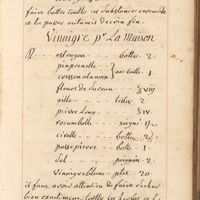 faire battre toutte ces substances ensemble
et les passer au tamis de crin fin.
Vinaigre pr La Maison
℞ estragon bottes 2
pimprenelle
cresson alanois } an botte 1
fleurs de sureau ℥ VIII
aille testes 2
poivre long ℥ IV
rocambolle
civette bottes
passepierre botte 1
Sel poignées 2
Vinaigre blanc ptes 20
il faut avoir attention de faire secher
bien exactement toutes les herbes et l